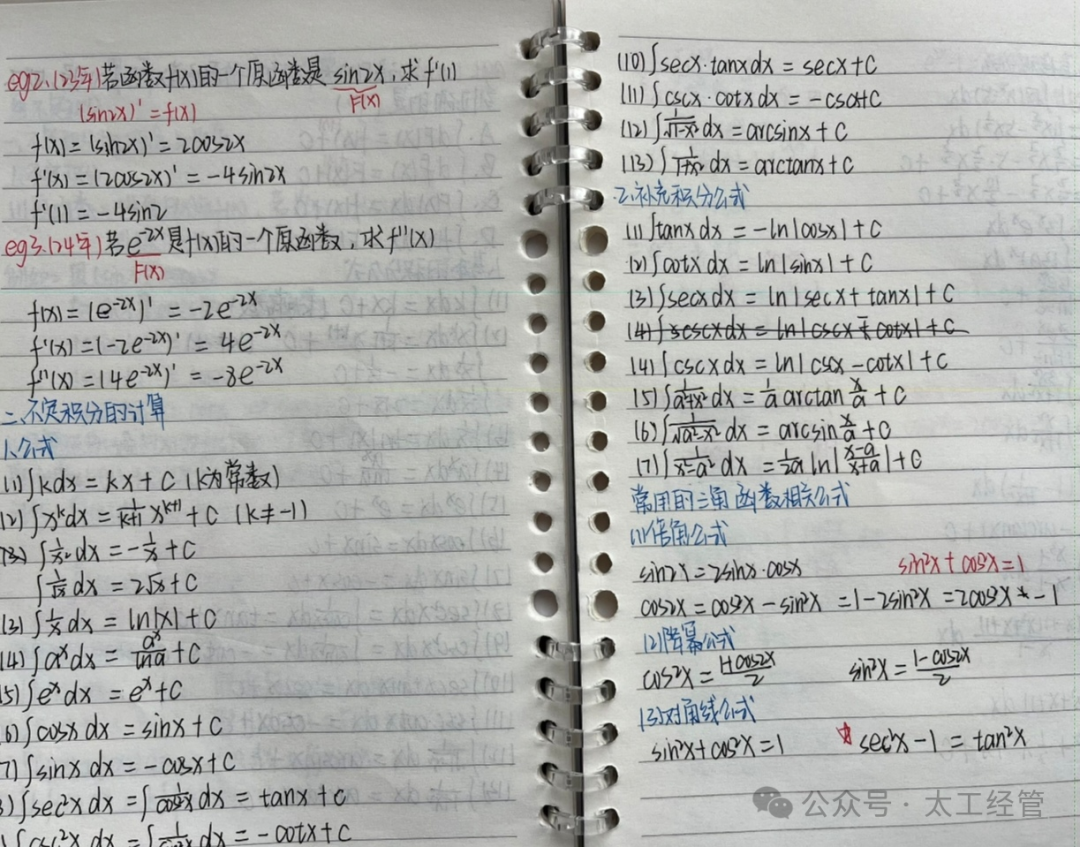 eg2.(23年)若函数f(x)的一个原函数是 sin2x,求f'(1)
F(x)
(sin2x)'=f(x)
f(x)=(sin2x)'=2cos2x
f'(x)=(2cos2x)'=-4sin2x
f'(1)=-4sin2
eg3.(24年)若e^{-2x}是f(x)的一个原函数,求f''(x)
F(x)
f(x)=(e^{-2x})'=-2e^{-2x}
f'(x)=(-2e^{-2x})'=4e^{-2x}
f''(x)=(4e^{-2x})'=-8e^{-2x}
二、不定积分的计算
1.公式
(1)∫kdx=kx+C (k为常数)
(2)∫x^k dx=\frac{1}{k+1}x^{k+1}+C (k≠-1)
∫\frac{1}{x²}dx=-\frac{1}{x}+C
∫\frac{1}{\sqrt{x}}dx=2√x+C
(3)∫\frac{1}{x}dx=ln|x|+C
(4)∫a^x dx=\frac{a^x}{lna}+C
(5)∫e^x dx=e^x+C
(6)∫cosx dx=sinx+C
(7)∫sinx dx=-cosx+C
)∫sec²x dx=∫\frac{1}{cos²x}dx=tanx+C
∫csc²x dx=∫\frac{1}{sin²x}dx=-cotx+C
(10)∫secx·tanxdx=secx+C
(11)∫cscx·cotxdx=-cscx+C
(12)∫\frac{1}{\sqrt{1-x²}}dx=arcsinx+C
(13)∫\frac{1}{1+x²}dx=arctanx+C
2.补充积分公式
(1)∫tanx dx=-ln|cosx|+C
(2)∫cotx dx=ln|sinx|+C
(3)∫secx dx=ln|secx+tanx|+C
(4)∫cscx dx=ln|cscx-cotx|+C
(5)∫\frac{1}{a²+x²}dx=\frac{1}{a}arctan\frac{x}{a}+C
(6)∫\frac{1}{\sqrt{a²-x²}}dx=arcsin\frac{x}{a}+C
(7)∫\frac{1}{x²-a²}dx=\frac{1}{2a}ln|\frac{x-a}{x+a}|+C
常用的三角函数相关公式
(1)倍角公式
sin2x=2sinx·cosx sin²x+cos²x=1
cos2x=cos²x-sin²x=1-2sin²x=2cos²x-1
(2)降幂公式
cos²x=\frac{1+cos2x}{2} sin²x=\frac{1-cos2x}{2}
(3)对角线公式
sin²x+cos²x=1 ☆sec²x-1=tan²x
公众号·太工经管